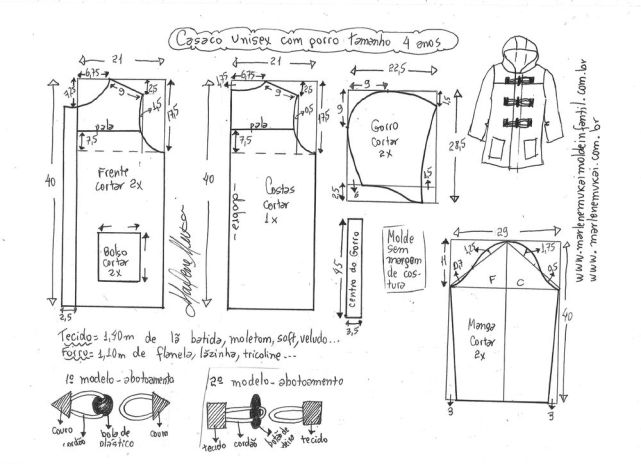 Casaco unisex com gorro tamanho 4 anos
21
6,75
7,5
9
2,5
1,5
17,5
pala
7,5
40
Frente
cortar 2x
Bolso
cortar
2x
2,5
21
1,75
6,75
9
2,5
0,5
17,5
pala
7,5
40
dobra
Costas
cortar
1x
22,5
9
9
1,5
Gorro
cortar
2x
28,5
1,5
2,5
45
centro do Gorro
3,5
Molde
sem
margem
de cos-
tura
29
1,25
1,75
11
0,7
0,5
F C
Manga
cortar
2x
40
3 3
www.marlenemukaimoldeinfantil.com.br
www.marlenemukai.com.br
Marlene Mukai
Tecido = 1,40m de lã batida, moletom, soft, veludo...
Forro = 1,10m de flanela, lãzinha, tricoline...
1º modelo - abotoamento
couro
cordão
bola de
plástico
couro
2º modelo - abotoamento
tecido
cordão
tecido